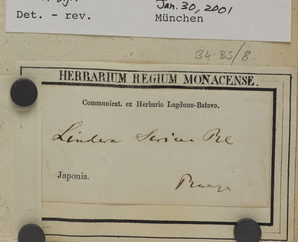 Jan. 30, 2001
Det. - rev. München
B4 85/8.
HERBARIUM REGIUM MONACENSE.
Communicat. ex Herbario Lugduno-Batavo.
Lindera Sericea Bl
Japonia.